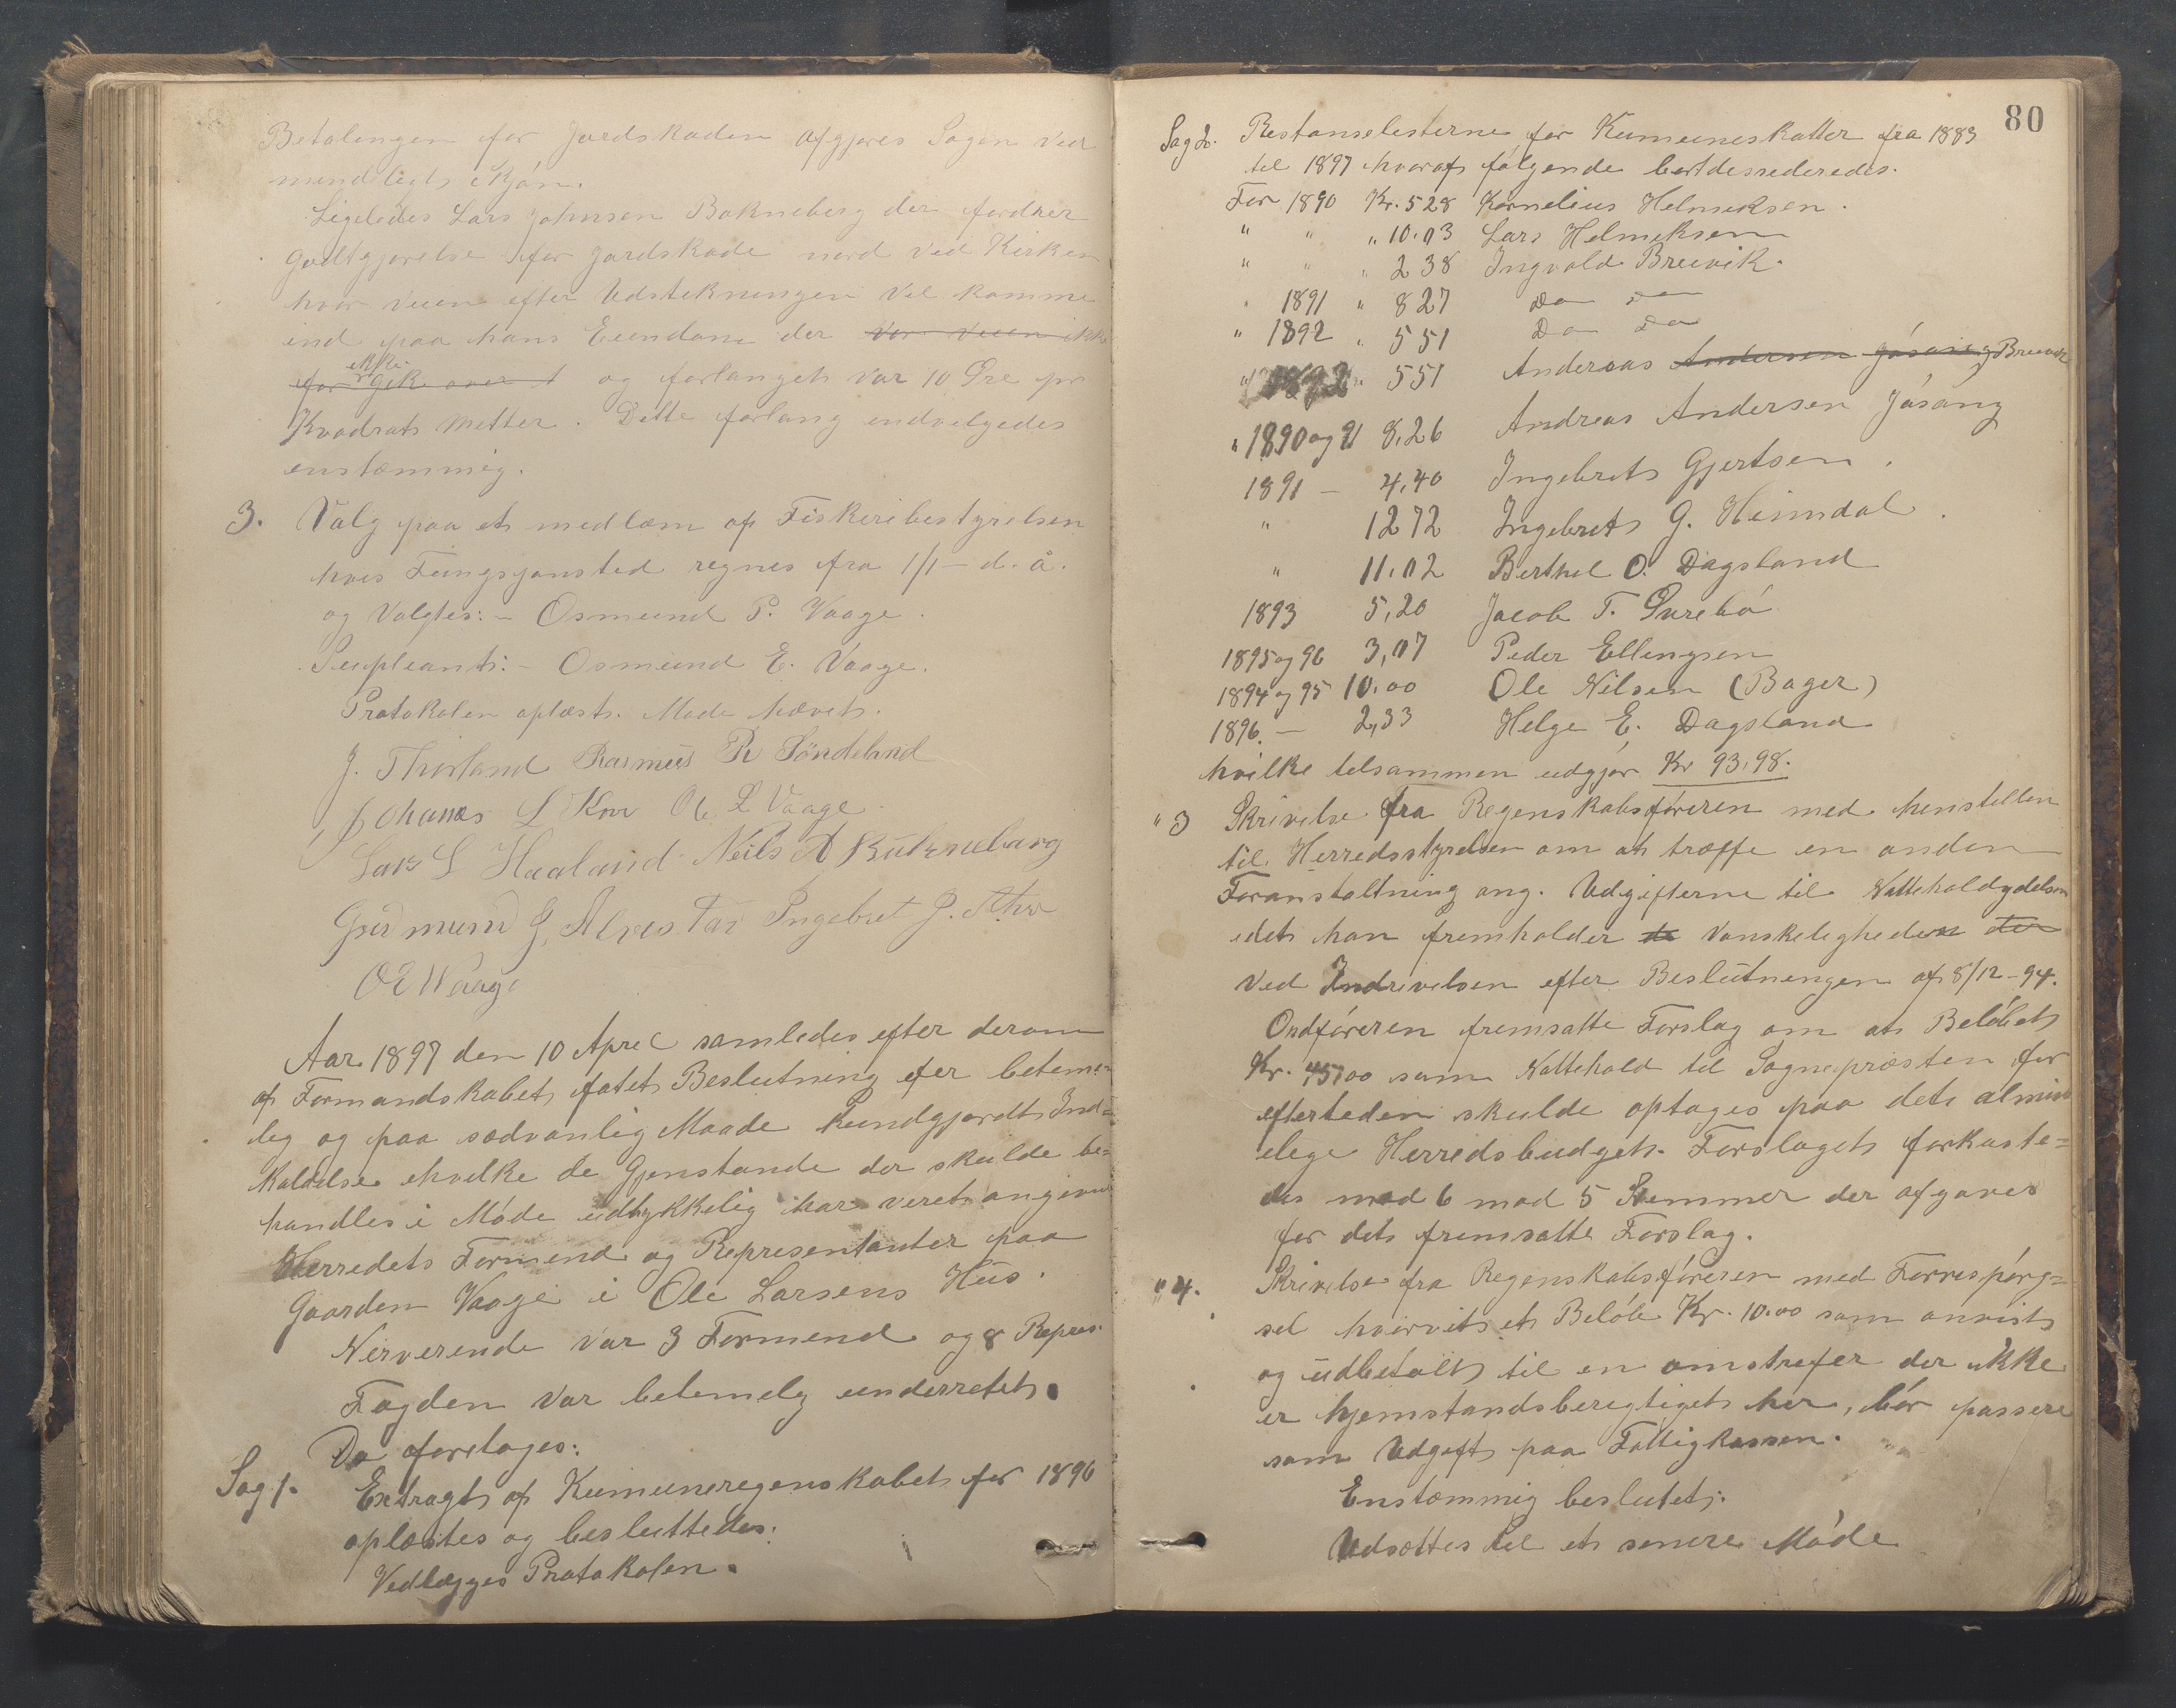 Betalingen for Jordskaden afgjøres Sagen ved
mindligt Skjøn.
Ligeledes Lars Johnsen Bokneberg der fordrer
Godtgjørelse for Jordskade nord ved Kirken
hvor veien efter Udstikningen vil komme
ind paa hans Eiendom der var veien ikke
ikke
for gik over og forlanget var 10 Øre pr
Kvadrat Metter. Dette forlang indvelgedes
enstemmig.
3. Valg paa et medlem af Fiskeribestyrelsen
hvis Fungsjonstid regnes fra 1/1 - d. å.
og Valgtes: - Osmund P. Vaage.
Supleant: - Osmund E. Vaage.
Protokolen oplæst. Møde hævet.
J. Thorland Rasmus R Søndeland
Johanes L Kro Ole L Vaage
Lars L Haaland Neils A Bukneberg
Gudmund G. Alvestad Ingebret J.
O E Waage
Aar 1897 den 10 April samledes efter derom
af Formandskabet fatet Beslutning efter betime-
lig og paa sædvanlig Maade kundgjordt Ind=
kaldelse hvilke de Gjenstande der skulde be=
handles i Møde udtykkelig har veret angivne
Herredets Formend og Representanter paa
Gaarden Vaage i Ole Larsens Hus.
Nerverende var 3 Formend og 8 Repres.
Fogden var betimelig underretet.
Da foretoges:
Sag 1. Extragt af Kumuneregenskabet for 1896
oplæstes og besluttedes:
Vedlægges Protokolen.
80
Sag 2. Restanselisterne for Kumuneskatter fra 1883
til 1897 hvoraf følgende bortdessideredes.
For 1890 Kr. 5 28 Kornelius Helmeksen.
" " " 10.03 Lars Helmeksen
" " " 2 38 Ingvald Breivik.
" 1891 " 8 27 Do Do
" 1892 " 5 51 Do Do
" 1892 " 5 51 Andereas Andersen Jøsang Breivik
" 1890 og 91 8,26 Andreas Andersen Jøsang
1891 - 4,40 Ingebret Gjertsen.
" 12 72 Ingebret G. Heimdal.
" 11.02 Berthel O. Dagsland
1893 5,20 Jacob T. Purebø
1895 og 96 3,07 Peder Ellingsen
1894 og 95 10.00 Ole Nilsen (Bager)
1896. - 2,33 Helge E. Dagsland
hvilke tilsammen udgjør Kr 93.98.
" 3 Skrivelse fra Regenskabsføreren med henstillen
til Herredsstyrelsen om at træffe en anden
Foranstaltning ang. Udgifterne til Natteholdydelsen
idet han fremholder de Vanskeligheden der
ved Indrivelsen efter Beslutningen af 8/12 - 94.
Ordføreren fremsatte Forslag om at Beløbet
Kr. 45,00 som Nattehold til Sognepræsten for
eftertiden skulde optages paa det almind
elege Herredsbudget. Forslaget forkaste=
des med 6 mod 5 Stemmer der afgaves
for det fremsatte Forslag.
" 4. Skrivelse fra Regenskabsføreren med Forrespørg=
sel hvorvit et Beløb Kr. 10.00 som anvist
og udbetalt til en omstreifer der ikke
er hjemstandsberegtiget her, bør passere
som Udgift paa Fattigkassen.
Enstemmig beslutet:
Udsættes til et senere Møde